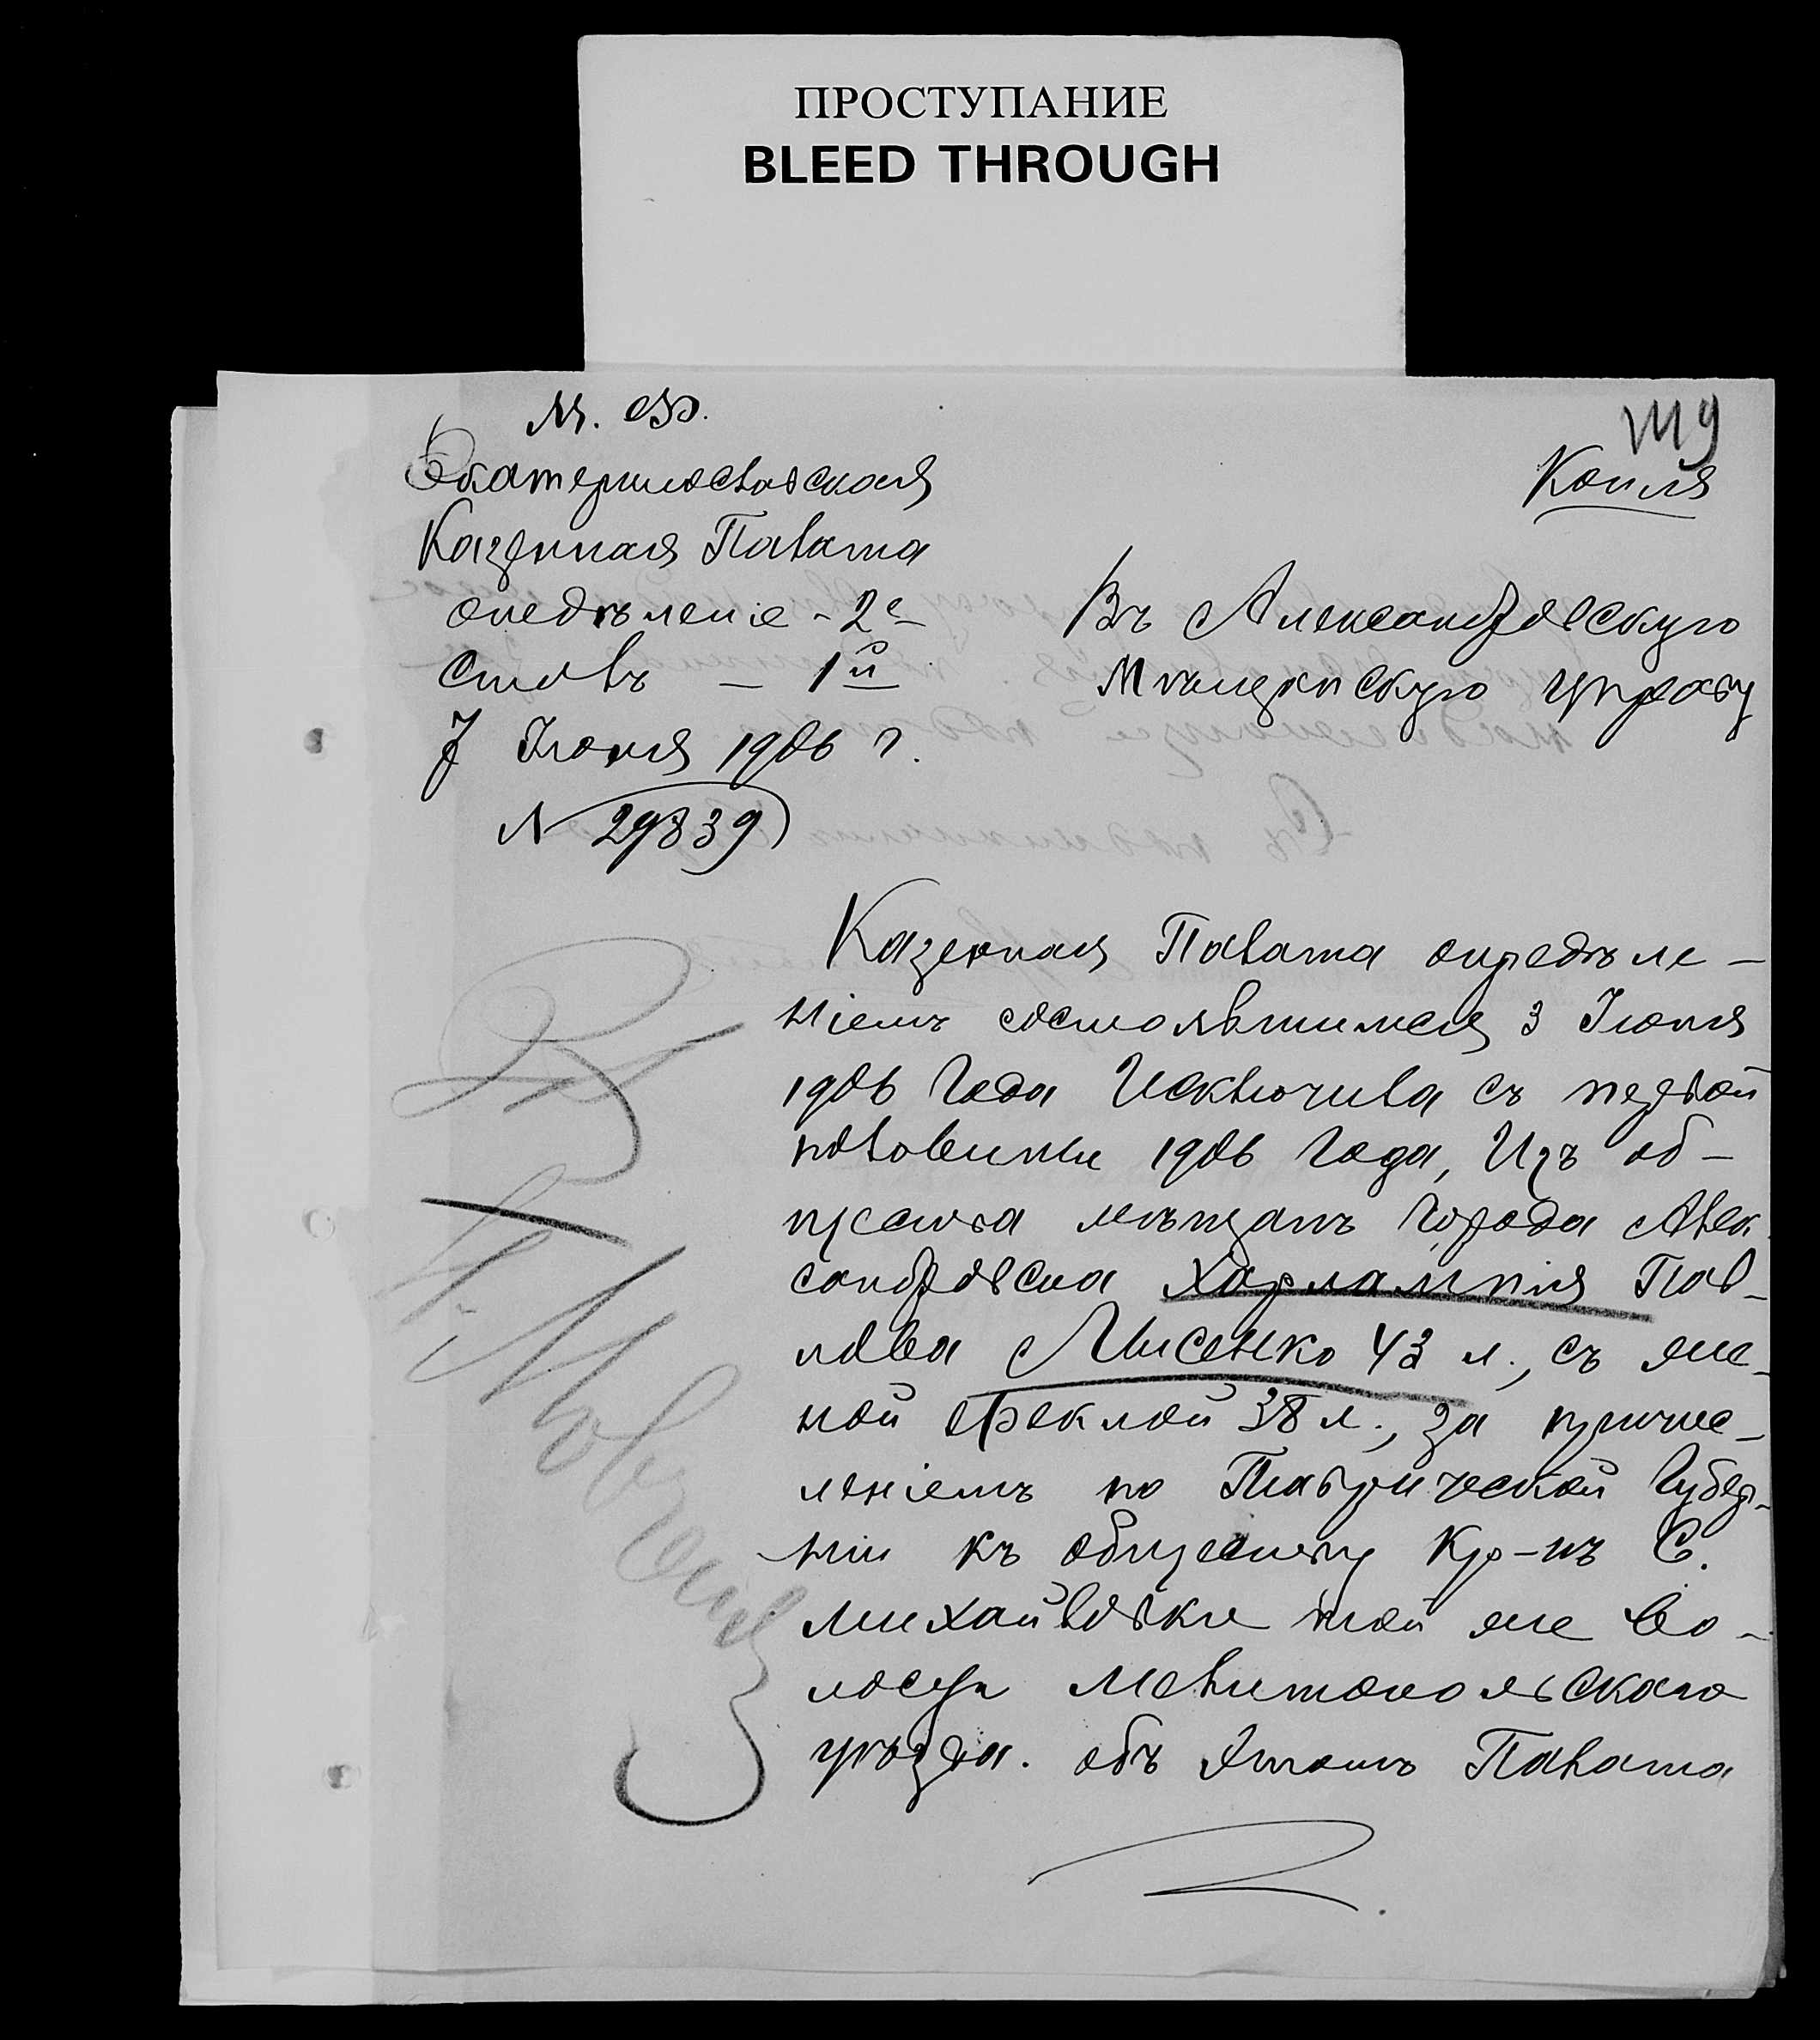 ПРОСТУПАНИЕ
BLEED THROUGH
М. Ф.
Екатеринославская
Казенная Палата
отедѣленіе - 2е
столъ — 1й
7 Июня 1906 г.
N 29839
Копія
Въ Александровскую
Мѣщанскую управу
Казенная Палата опредѣле-
ніемъ состоявшимся 3 Июня
1906 года Исключила съ первой
половины 1906 года, Изъ об-
щества мѣщанъ города Алек
сандровска Харлампія Пав-
лова Лисенко 43 л., съ же-
ной Феклой 38 л., за причис-
леніемъ по Таврической Губер-
ніи къ обществу Кр-нъ С.
михайловки той же во-
лости Мелитопольскаго
уѣзда. объ этомъ Палата